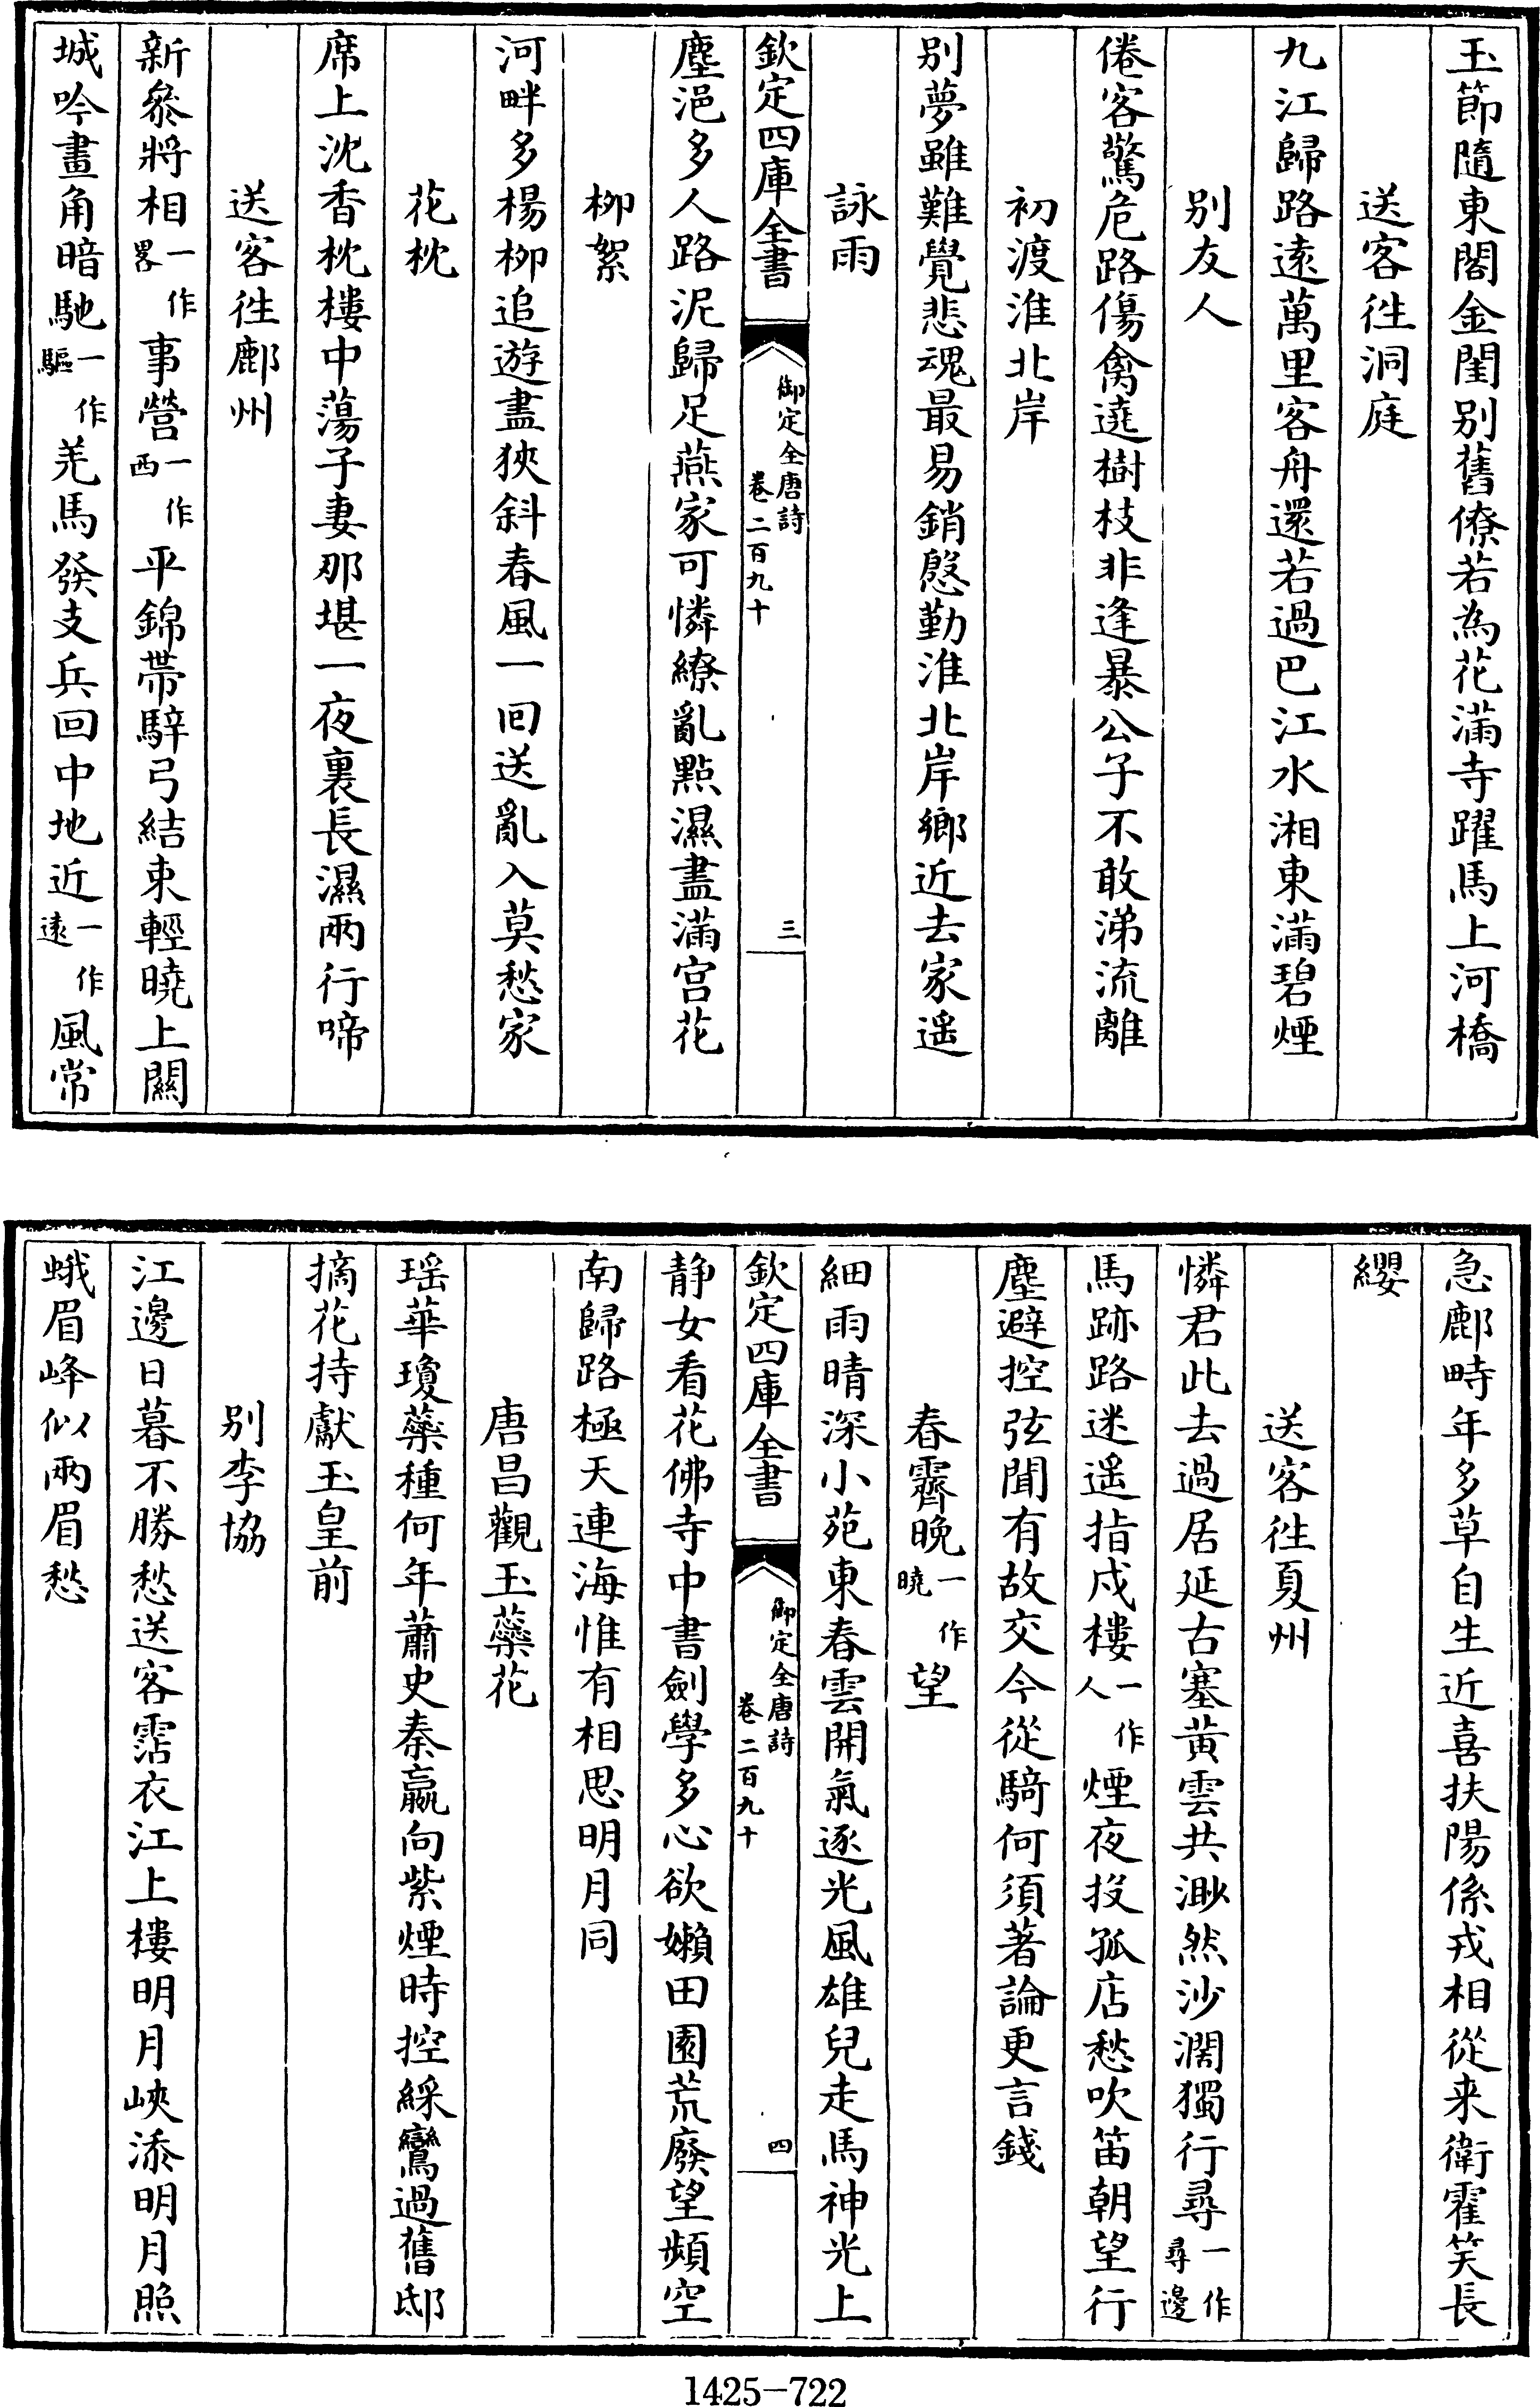 玉節隨東閣金閨别舊僚若為花滿寺躍馬上河橋
送客徃洞庭
九江歸路逺萬里客舟還若過巴江水湘東滿碧煙
别友人
倦客驚危路傷禽遶樹枝非逢暴公子不敢涕流離
初渡淮北岸
别夢雖難覺悲魂最易銷慇勤淮北岸鄉近去家遥
詠雨
欽定四庫全書
御定全唐詩
卷二百九十
三
塵浥多人路泥歸足燕家可憐繚亂點濕盡滿宫花
柳絮
河畔多楊柳追遊盡狹斜春風一回送亂入莫愁家
花枕
席上沈香枕樓中蕩子妻那堪一夜裏長濕兩行啼
送客徃鄜州
新叅將相一作畧事營一作西平錦帶騂弓結束輕曉上闗
城吟畫角暗馳一作驅羌馬發支兵回中地近一作逺風常
急鄜畤年多草自生近喜扶陽係戎相從来衛霍笑長
纓
送客徃夏州
憐君此去過居延古塞黄雲共渺然沙濶獨行尋一作尋邊
馬跡路迷遥指戍樓一作人煙夜投孤店愁吹笛朝望行
塵避控弦聞有故交今從騎何須著論更言錢
春霽晚一作曉望
細雨晴深小苑東春雲開氣逐光風雄兒走馬神光上
欽定四庫全書
御定全唐詩
卷二百九十
四
静女看花佛寺中書劍學多心欲嬾田園荒廢望頻空
南歸路極天連海惟有相思明月同
唐昌觀玉蘂花
瑶華瓊蘂種何年蕭史秦嬴向紫煙時控綵鸞過舊邸
摘花持獻玉皇前
别李協
江邊日暮不勝愁送客霑衣江上樓明月峽添明月照
蛾眉峰似兩眉愁
1425-722